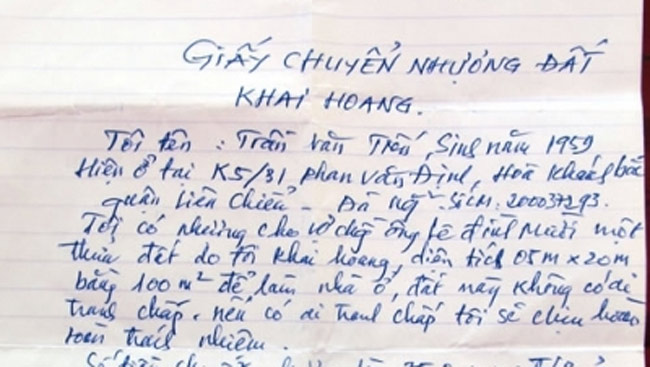 GIẤY CHUYỂN NHƯỢNG ĐẤT
KHAI HOANG.
Tôi tên : Trần Văn Trấn, Sinh năm 1959
Hiện ở tại K5/31 Phan Văn Định, Hoà Khánh bắc
quận Liên Chiểu - Đà Ng SCM: 200037293.
Tôi có nhường cho vợ chồng ông Lê Đình Mười một
thửa đất do tôi khai hoang, diện tích 05m x 20m
bằng 100m² để làm nhà ở, đất này không có ai
tranh chấp. nếu có ai tranh chấp tôi sẽ chịu hoàn
toàn trách nhiệm.